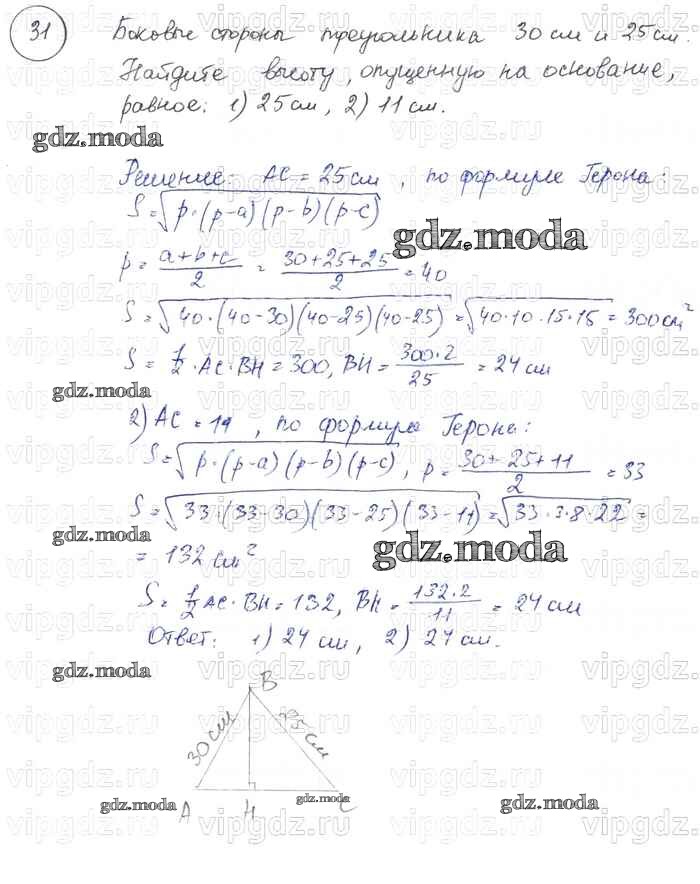 31 Боковые стороны треугольника 30 см и 25 см.
Найдите высоту, опущенную на основание,
равное: 1) 25 см, 2) 11 см.
gdz.moda
Решение: AC = 25 см, по формуле Герона:
S = √(p·(p-a)(p-b)(p-c))
gdz.moda
p = (a+b+c)/2 = (30+25+25)/2 = 40
S = √(40·(40-30)(40-25)(40-25)) = √(40·10·15·15) = 300 см²
S = 1/2 · AC · BH = 300, BH = (300·2)/25 = 24 см
gdz.moda
2) AC = 11, по формуле Герона:
S = √(p·(p-a)(p-b)(p-c)), p = (30+25+11)/2 = 33
S = √(33·(33-30)(33-25)(33-11)) = √(33·3·8·22) =
gdz.moda
= 132 см²
gdz.moda
S = 1/2 AC · BH = 132, BH = (132·2)/11 = 24 см
Ответ: 1) 24 см, 2) 24 см.
gdz.moda
B
30 см 25 см
A H C
gdz.moda
gdz.moda
gdz.moda
vipgdz.ru